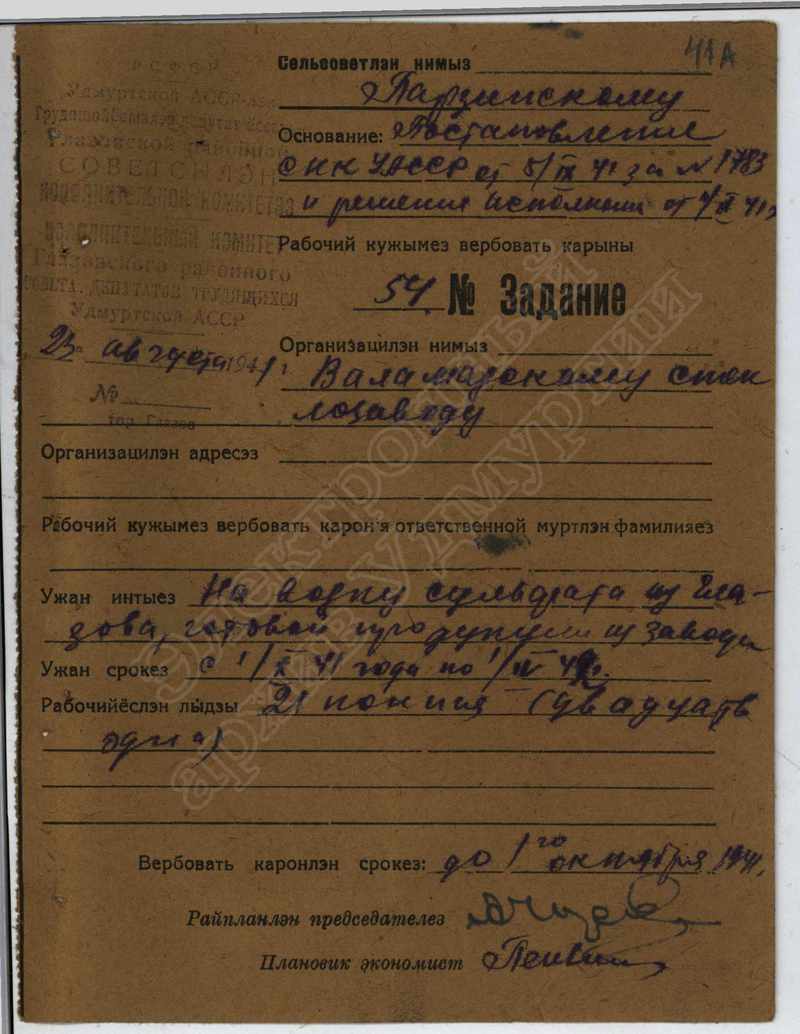 41А
Сельсоветлэн нимыз
Парзинскому
РСФСР
Удмуртской АССР-лэн
Глазовской районной
СОВЕТСЛЭН
ИСПОЛНИТЕЛЬНОЙ КОМИТЕТЭЗ
ИСПОЛНИТЕЛЬНЫЙ КОМИТЕТ
Глазовского районного
СОВЕТА ДЕПУТАТОВ ТРУДЯЩИХСЯ
Удмуртской АССР
23 августа 1941 г.
№
гор. Глазов
Основание: Постановление
СНК УАССР от 5/IX 41 за № 1783
и решение исполкома от
Рабочий кужымез вербовать карыны
54 № Задание
Организацилэн нимыз
Валамазскому стек
лозаводу
Организацилэн адресэз
Рабочий кужымез вербовать карон'я ответственной муртлэн фамилияез
Ужан интыез На возку сульфата из Гла-
зова, готовой продукции из завода
Ужан срокез с 1/X 41 года по 1/IV 42
Рабочийёслэн лыдзы 21 кон (двадцать
одна)
Вербовать каронлэн срокез: до 1го октября 1941.
Райпланлэн председателез
Плановик экономист